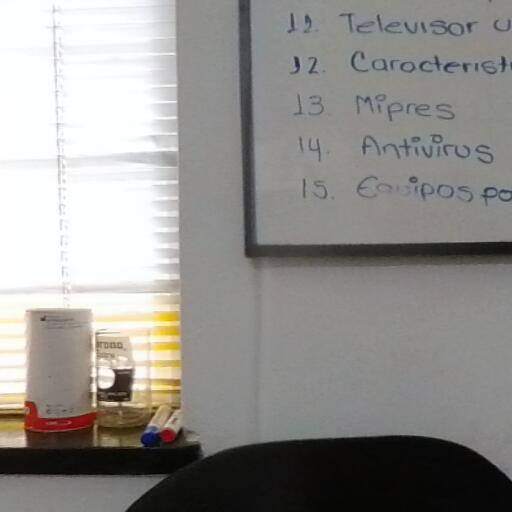 11. Televisor
12. Característ
13 Mipres
14. Antivirus
15. Equipos po